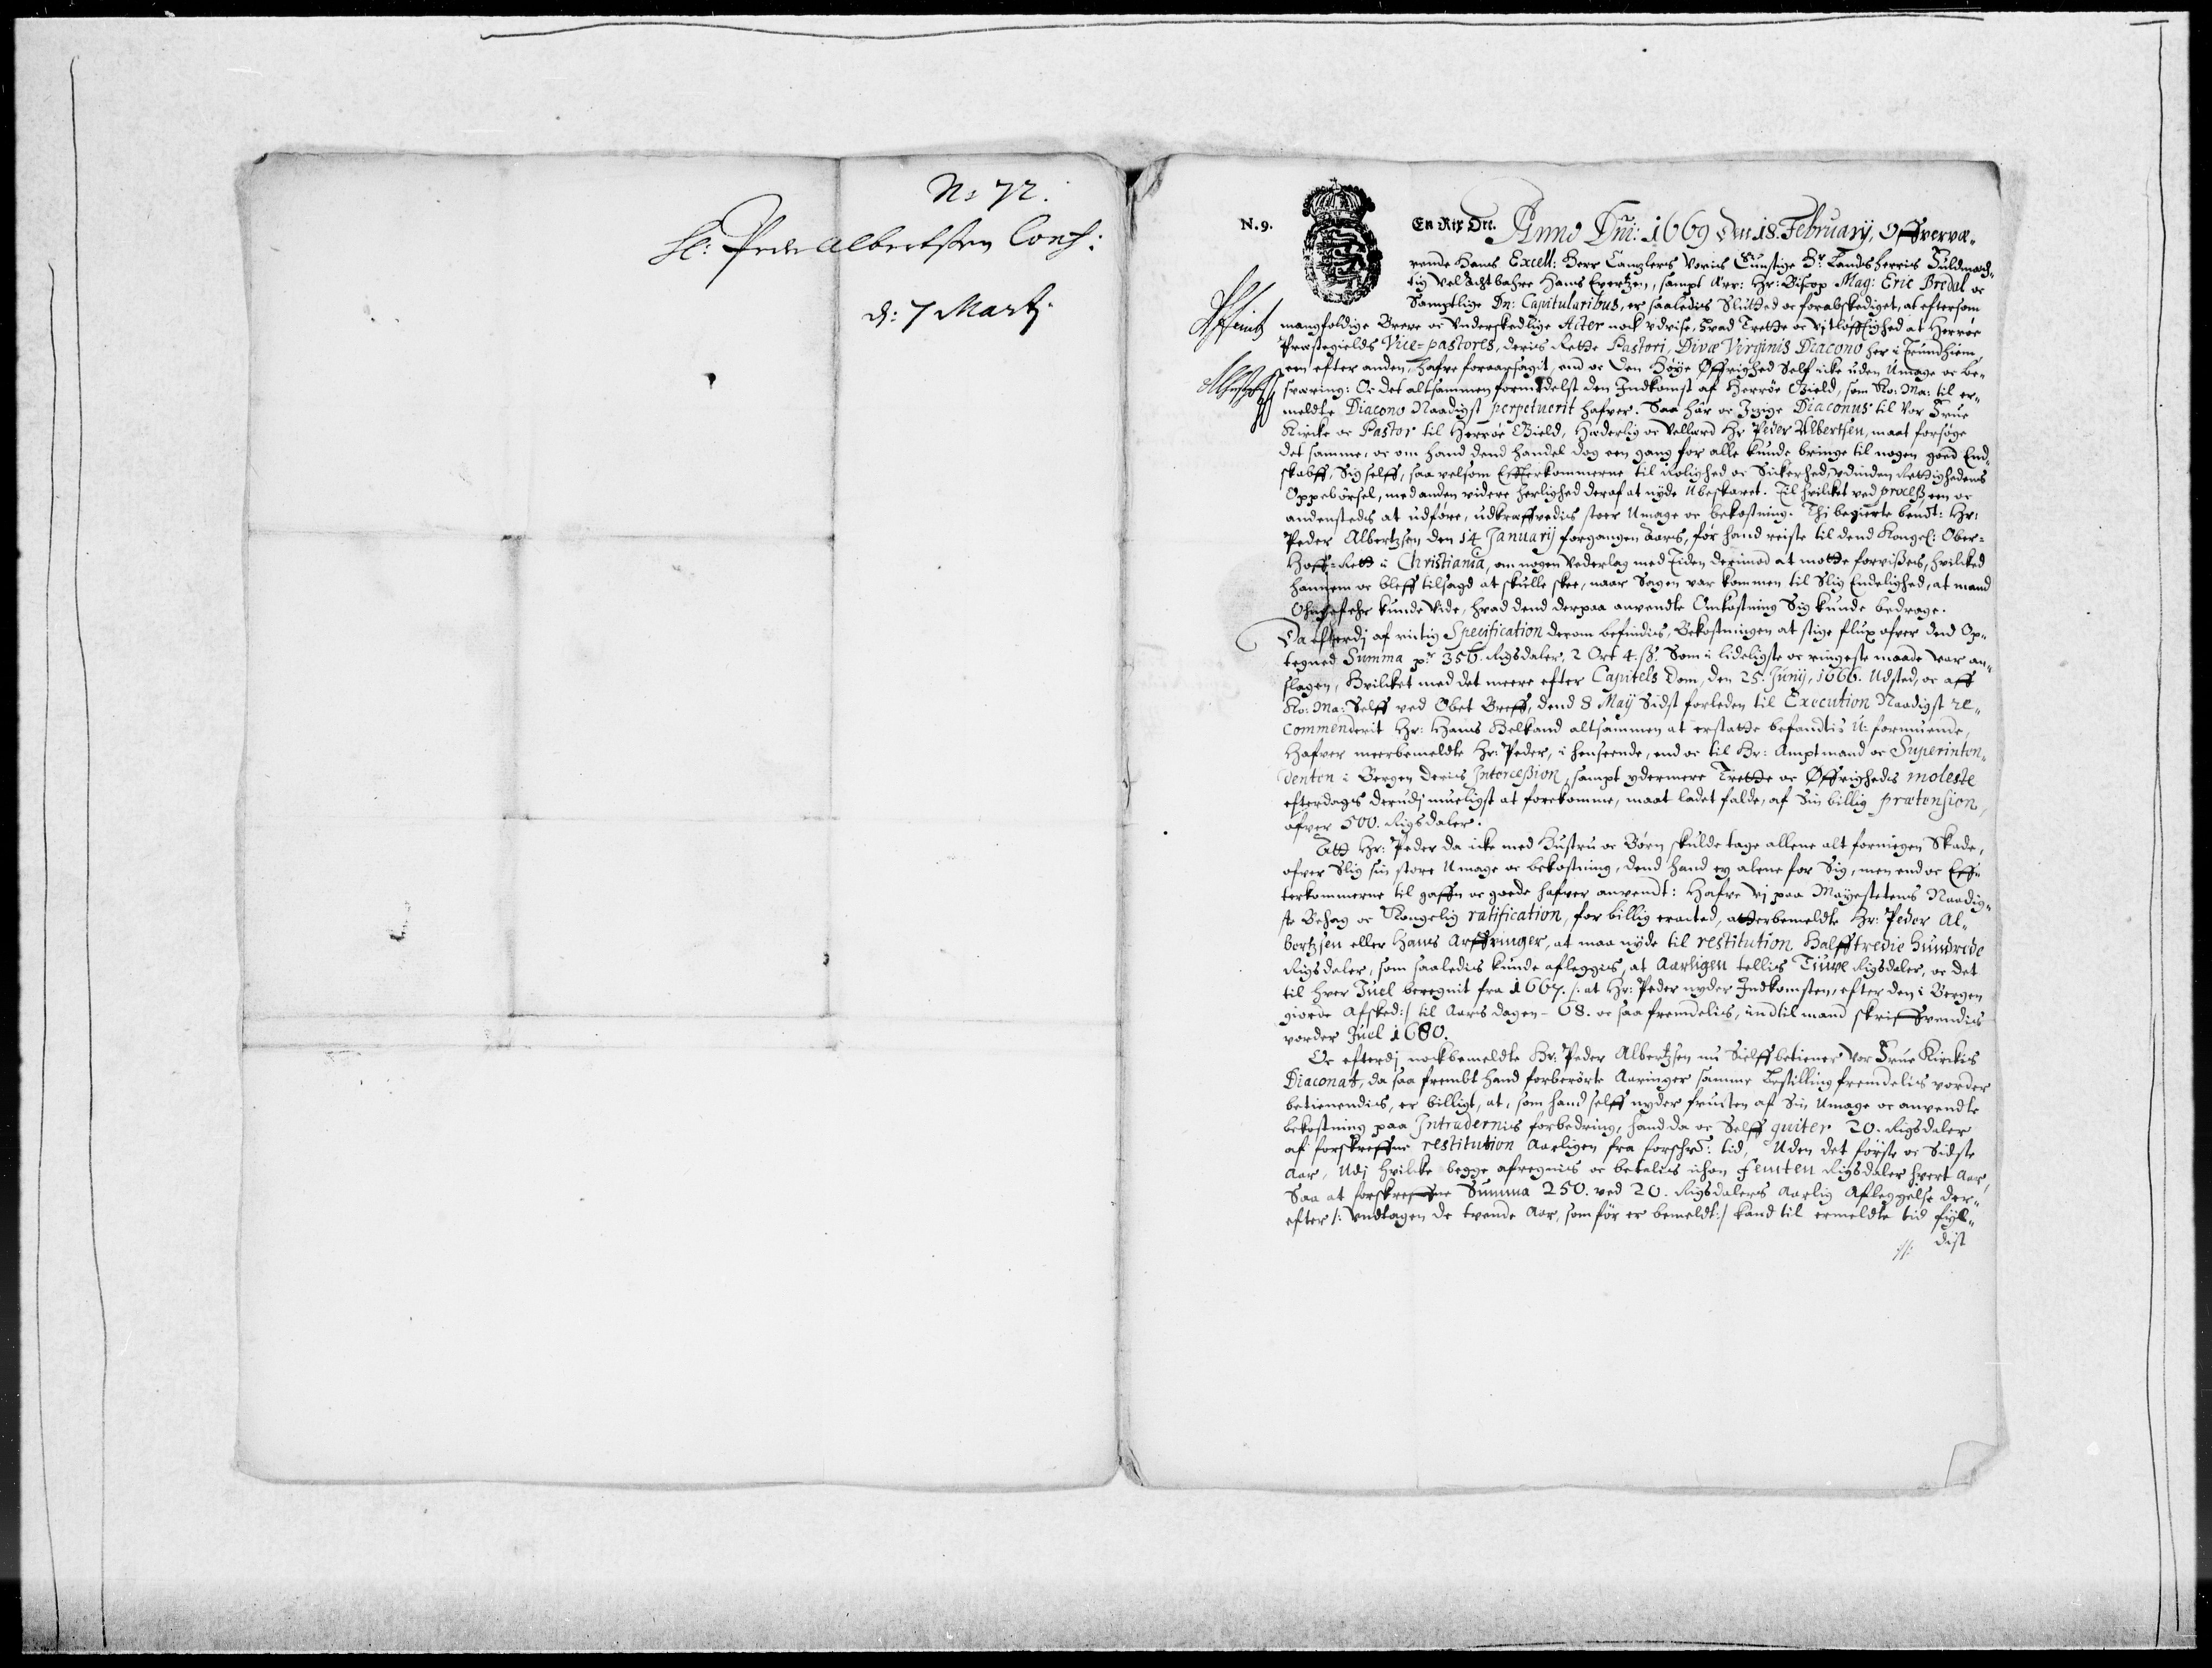 No 72.
Hr: Peder Albertsen Conf:
d: 7 Martj.
N. 9.
En Rix Ort.
Anno Dni: 1669 Den 18. February, Offvervæ-
rende Hans Excell: Herr Canzlers voris Gunstige Hr. Landsherris Fuldmæch-
tig Vel Achtbahre Hans Evertzen, sampt Ær: Hr: Biscop Mag: Eric Bredal oc
Samptlige Dn: Capitularibus, er saaledis Slutted oc forabskediget, at eftersom
mangfoldige Breve oc Underskedlige Acter nock udvise, hvad Trette oc vitløfftighed at Herrøe
Præstegields Vice-pastores, deris Rette Pastori, Divæ Virginis Diacono her i Trundhiem,
een efter anden, hafve foraarsagit, end oc Den Høye Øffrighed Self icke uden Umage oc be-
sværing: Oc det altsammen formedelst den Indkomst af Herrøe Gield, som Ko: Ma: til er-
meldte Diacono Naadigst perpetuerit hafver. Saa har oc Izige Diaconus til Vor Frue
Kircke oc Pastor til Herrøe Gield, Hæderlig oc Vellærd Hr Peder Albertsen, maat forsøge
det samme, oc om hand dend handel dog een gang for alle kunde bringe til nogen goed End-
skabff, Sig selff, saa velsom Effterkommerne til Rolighed oc Sickerhed, udinden Rettighedens
Oppebørsel, med anden videre herlighed deraf at nyde Ubeskaaret. Til hvilcket ved proceß, een oc
andenstedis at udføre, udkraffvedis stoer Umage oc bekostning. Thi begierte bemt: Hr:
Peder Albertzsen den 14 January forgangen Aars, før hand reiste til dend Kongel: Ober-
Hoff-Rett i Christiania, om nogen Vederlag med Tiden derimod at motte forvißes, hvilcked
hannem oc bleff tilsagd at skulle skee, naar Sagen var kommen til Slig Endelighed, at mand
Ohngefehr kunde Vide, hvad dend derpaa anvendte Omkostning Sig kunde bedrage.
Da efterdj af rictig Specification derom befindis, Bekostningen at stige flux ofver dend Op-
tegned Summa pr 356. Rigsdaler, 2 Ort 4. ß. Som i lideligste oc ringeste maade var an-
slagen, Hvilcket med det meere efter Capitels Dom, den 25. Junij, 1666. Udsted, oc aff
Ko: Ma: Selff ved Obet Breff, dend 8 Maij Sidst forleden til Execution Naadigst re-
commenderit Hr: Hans Belkand altsammen at erstatte befandtis U-formuende,
Hafver meerbemeldte Hr: Peder, i henseende, end oc til Hr: Amptmand oc Superinten-
denten i Bergen deris Interceßion, sampt ydermere Trette oc Øffrighedis moleste
efterdages derudj mueligst at forekomme, maat ladet falde, af Sin billig prætension,
ofver 500. Rigsdaler.
Att Hr: Peder da icke med Hustru oc Børn skulde tage allene alt formegen Skade,
ofver Slig sin store Umage oc bekostning, dend hand ey alene for Sig, men end oc Eff-
terkommerne til gaffn oc goede hafver anvendt: Hafve vj paa Mayestetens Naadig-
ste Behag oc Kongelig ratification, for billig eracted, atterbemeldte Hr: Peder Al-
bertzsen eller Hans Arffvinger, at maa nyde til restitution Halfftredie Hundrede
Rigsdaler, som saaledis kunde afleggis, at Aarligen tellis Tiuve Rigsdaler, oc det
til hver Juel beregnit fra 1667. /: at Hr: Peder nyder Indkomsten, efter den i Bergen
giorde Afsked:/ til Aars dagen - 68. oc saa fremdelis, indtil mand skriffvendis
vorder Juel 1680.
Oc efterdj nockbemeldte Hr: Peder Albertzsen nu Sielff betiener Vor Frue Kirckis
Diaconat, da saa frembt hand forberørte Aaringer samme Bestilling fremdelis vorder
betienendis, er billigt, at, som hand selff nyder fructen af Sin Umage oc anvendte
bekostning paa Intradernis forbedring, hand da oc Selff quiter 20. Rigsdaler
af forskreffne restitution Aarligen fra forschrf: tid, Uden det første oc Sidste
Aar, Udj hvilcke begge afregnis oc betalis ichon Femten Rigsdaler hvert Aar,
Saa at forskreffne Summa 250. ved 20. Rigsdalers Aarlig Afleggelse der-
efter /: undtagen de tvende Aar, som før er bemeldt:/ kand til ermeldte tid fyl-
dist